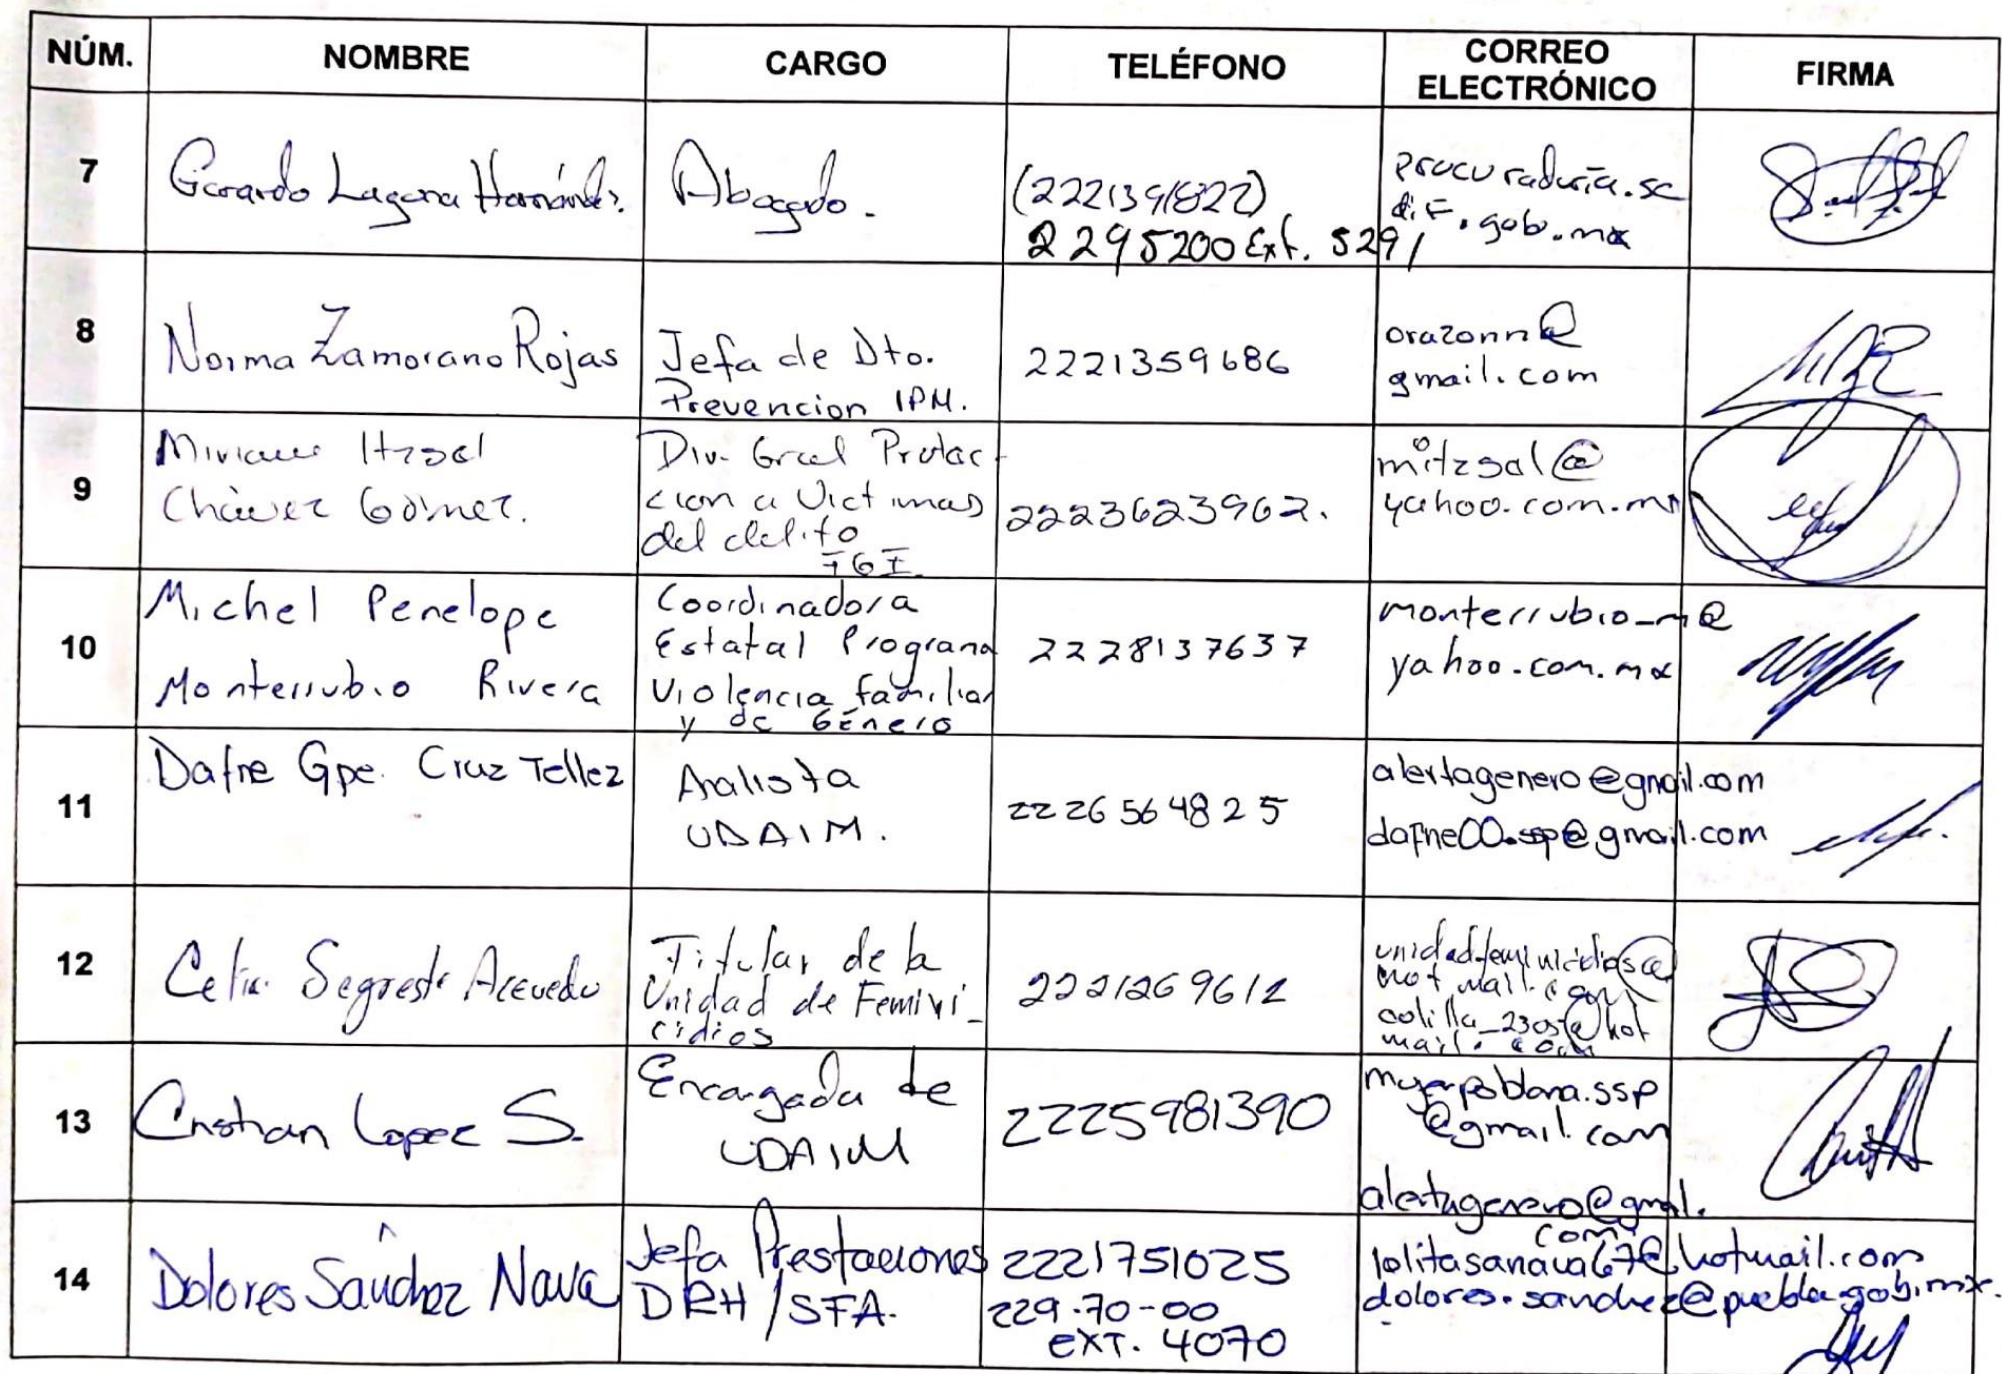 NÚM. NOMBRE CARGO TELÉFONO CORREO ELECTRÓNICO FIRMA
7 Gerardo Laguna Hernández. Abogado. (2221391822)
2295200 Ext. 5291
procuraduría.se
dif.gob.mx
8 Norma Zamorano Rojas Jefa de Dto.
Prevencion IPM.
2221359686
orazonn@
gmail.com
9 Itzel
Chàvez Gómez.
Dir. Gral Protec-
cion a Victimas
del delito
FGE.
2223623962.
mitzgal@
yahoo.com.mx
10 Michel Penelope
Monterrubio Rivera
Coordinadora
Estatal Programa
Violencia familiar
y de Género
2228137637
monterrubio_m@
yahoo.com.mx
11 Dafne Gpe. Cruz Tellez
Analista
UDAIM.
2226564825
alertagenero@gmail.com
dafne00.sp@gmail.com
12 Celia Segreste Acevedo
Titular de la
Unidad de Femini-
cidios
2221269612
unidadfeminicidios@
hotmail.com
colilla_2305@hot
mail.com
13 Cristhian Lopez S.
Encargada de
UDAIM
2225981390
mujerpoblana.ssp
@gmail.com
alertagenero@gmal.
com
14 Dolores Sánchez Nava
Jefa Prestaciones
DRH/SFA.
2221751025
229.70-00
EXT. 4070
lolitasanava67@hotmail.com
dolores.sanchez@puebla.gob.mx.